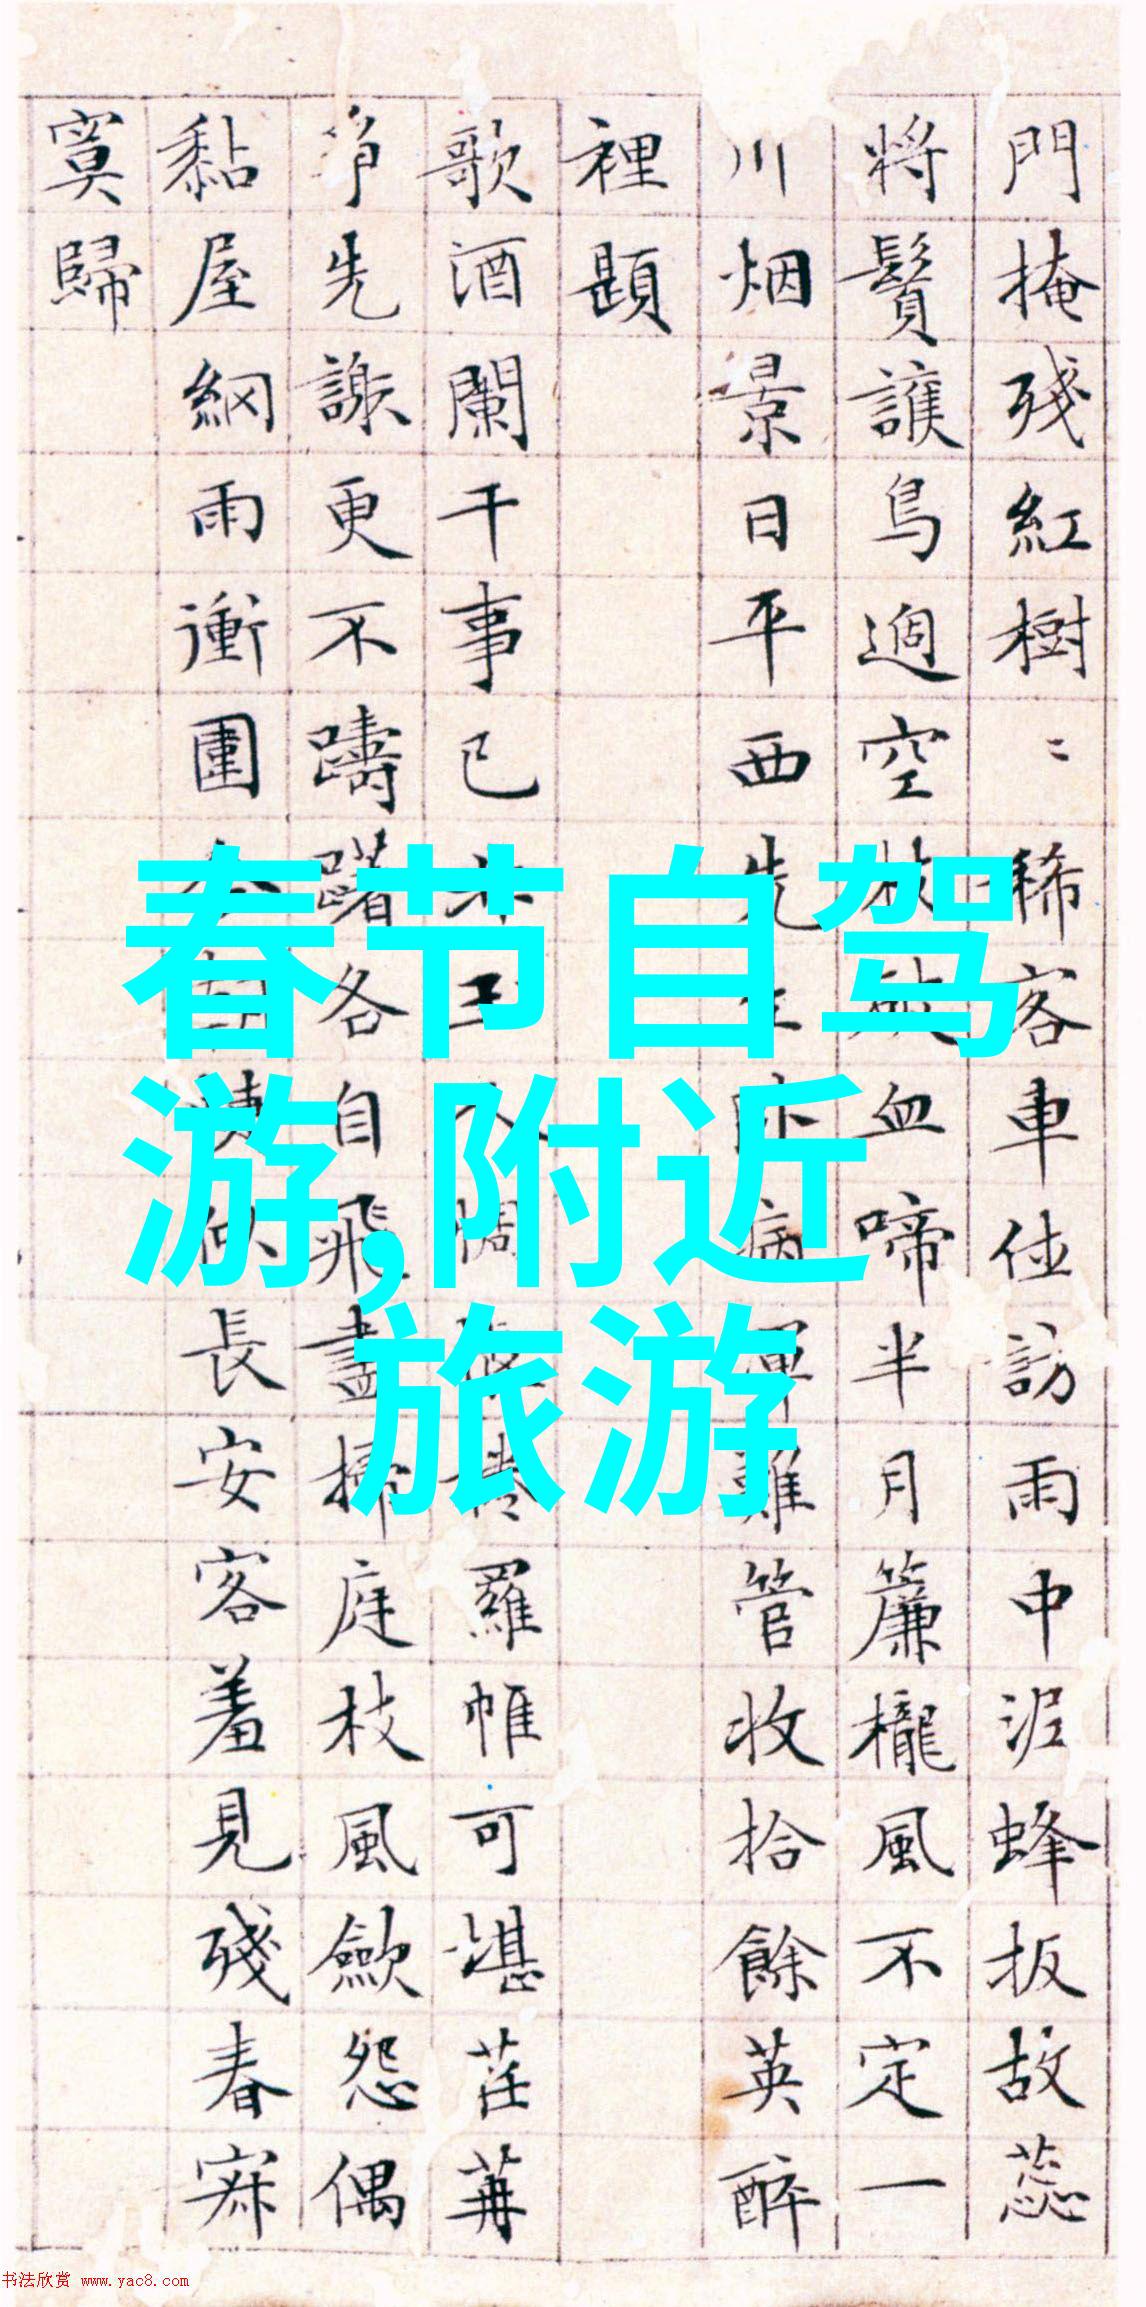 門掩殘紅樹〻稀客車住訪雨中泥蜂扳故蕊
將鬢護鳥過空枝血啼半月簾櫳風不定一
川烟景日平西先生卧病渾難管收拾餘英醉
裡題
歌酒闌干事已玉人惆羅帷可堪荏苒
爭先謝更不躊躇各自飛盡掃庭枝風歛怨偶
黏屋網雨衝圍長安客羞見殘春寂
寞歸
春节自驾
游,附近
旅游
书法欣赏 www.yac8.com